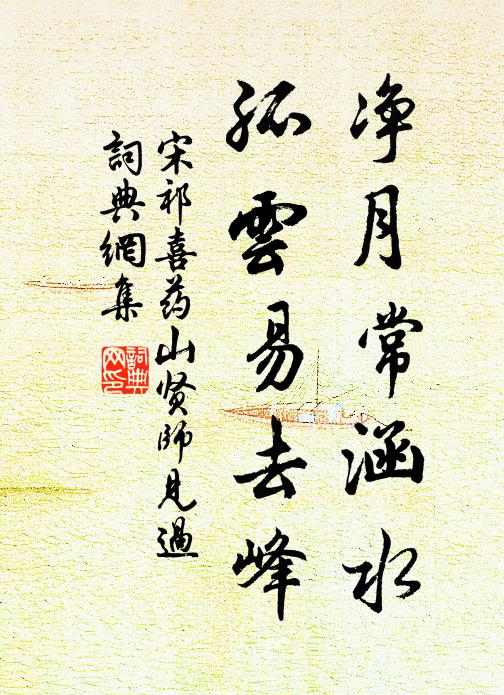 净月常涵水
孤雲易去峰
宋祁喜药山贤師見過
詞典網集
詞典网印